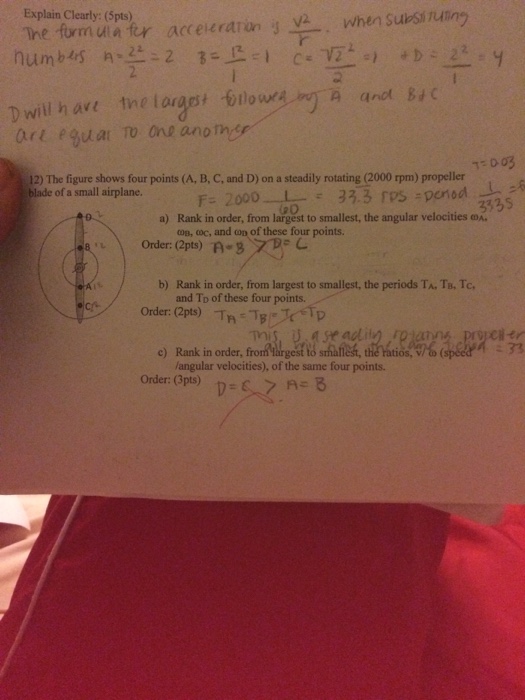 Explain Clearly: (5pts)
The formula for acceleration is V²/r. When substituting
numbers A = 2²/2 = 2 B = 1²/1 = 1 C = √2²/2 = 1 + D = 2²/1 = 4
D will have the largest followed by A and B & C
are equal to one another
T = 0.03
12) The figure shows four points (A, B, C, and D) on a steadily rotating (2000 rpm) propeller
blade of a small airplane.
F = 2000 1/60 = 33.3 rps = period 1/333s
a) Rank in order, from largest to smallest, the angular velocities ωA,
ωB, ωC, and ωD of these four points.
Order: (2pts) A = B > D = C
b) Rank in order, from largest to smallest, the periods TA, TB, TC,
and TD of these four points.
Order: (2pts) TA = TB = TC = TD
This is a steadily rotating propeller
c) Rank in order, from largest to smallest, the ratios, v/ω (speed
/angular velocities), of the same four points.
Order: (3pts) D = C > A = B
D
B
A
C